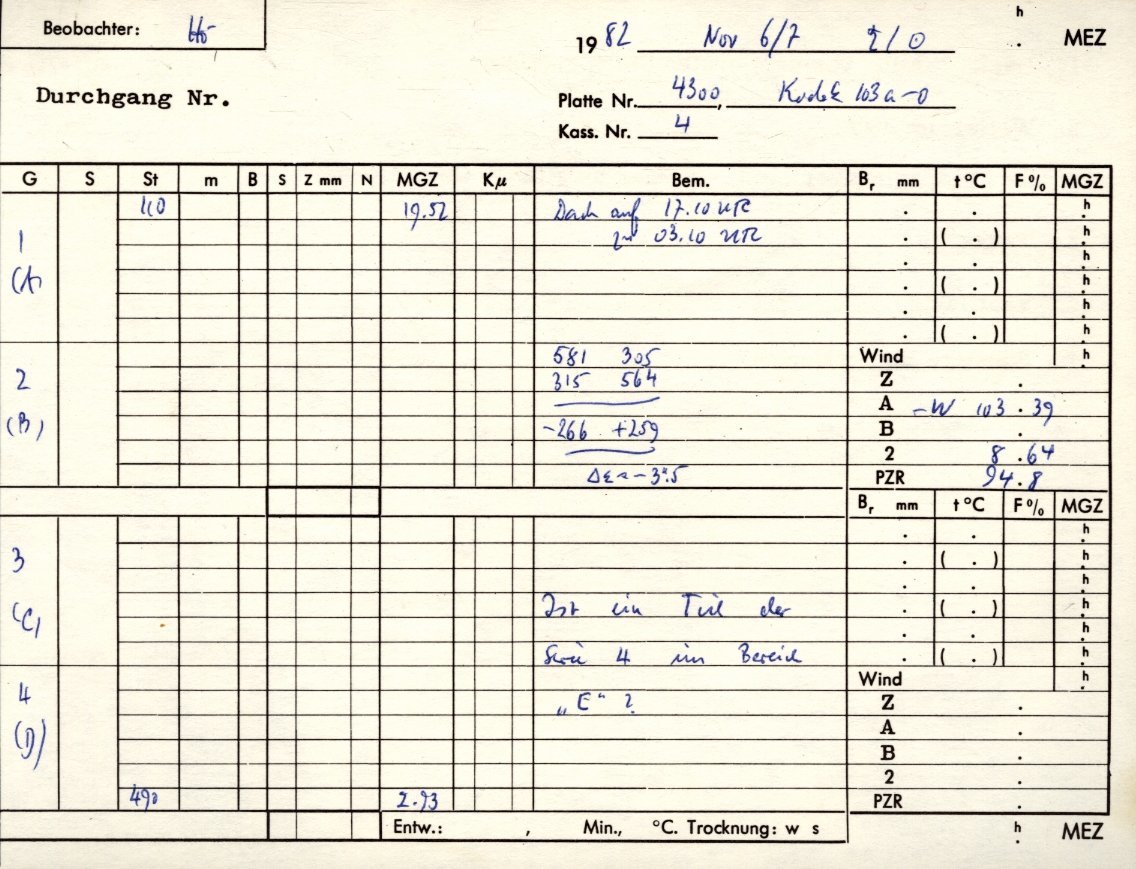 Beobachter: Hö
h
1982 Nov 6/7 . MEZ
Durchgang Nr.
Platte Nr. 4300, Kodak 103a-O
Kass. Nr. 4
G S St m B S Z mm N MGZ Kμ Bem. Br mm t °C F % MGZ
110 19.52 Dach auf 17.10 . . h
1 03.10 . ( . ) h
. . h
(A) . ( . ) h
. . h
. ( . ) h
581 305 Wind h
2 315 564 Z .
A -W 103.39
(B) -266 +259 B .
2 8.64
PZR 94.8
Br mm t °C F % MGZ
. . h
3 . ( . ) h
. . h
(C) Ist ein Teil der . ( . ) h
. . h
Serie 4 im Bereich . ( . ) h
Wind h
4 „E“ ? Z .
A .
(D) B .
2 .
490 2.93 PZR .
Entw.: , Min., °C. Trocknung: w s h
. MEZ